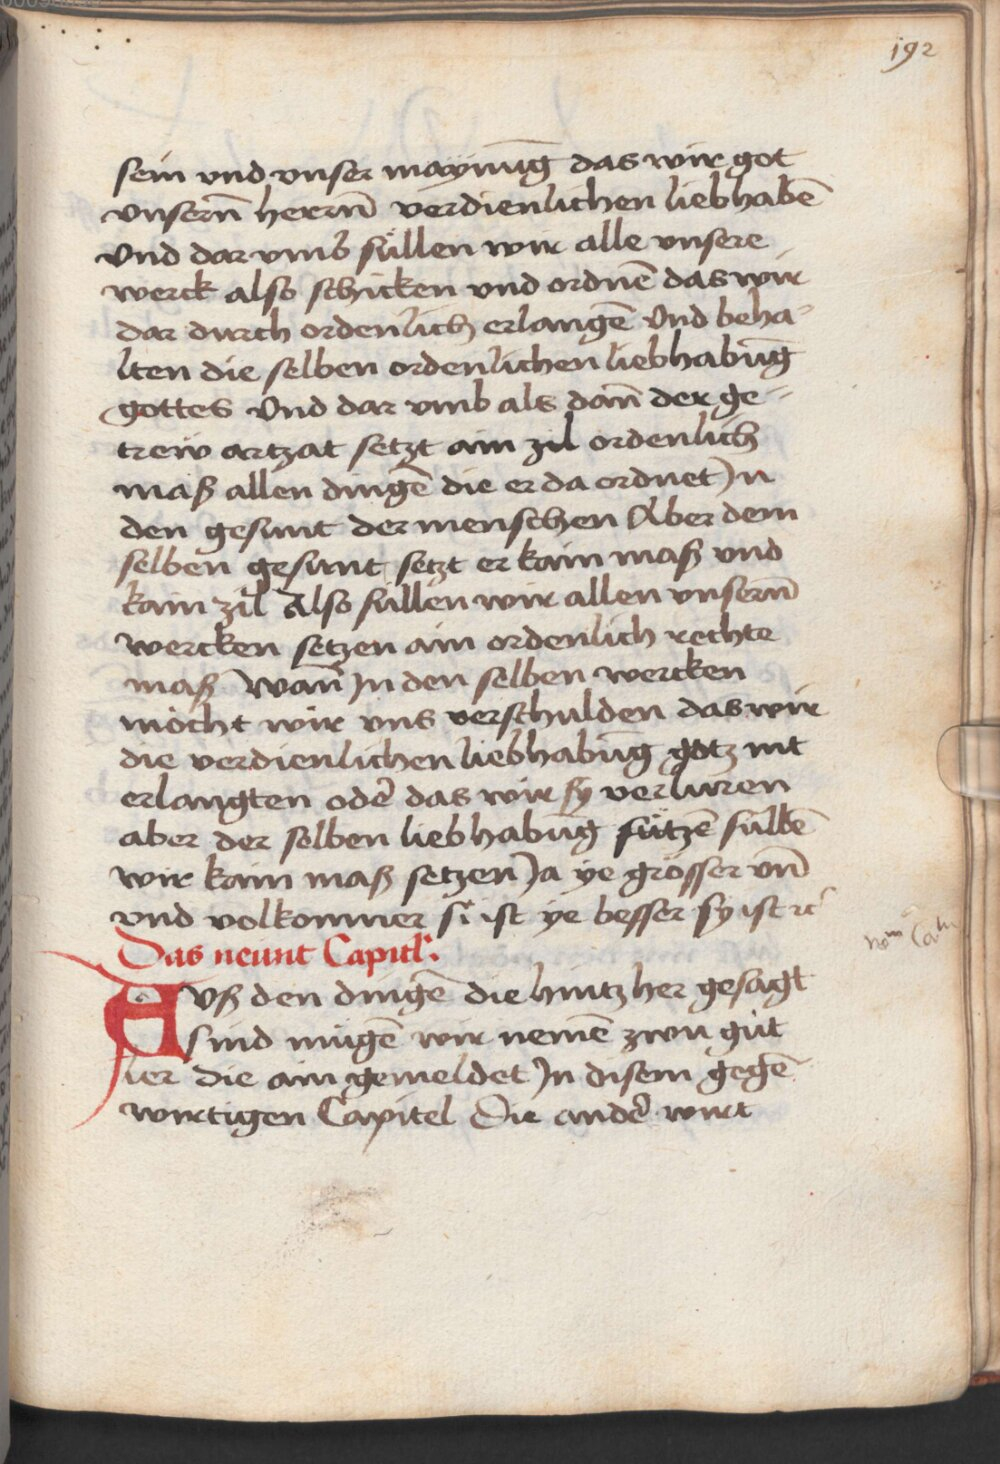 192
sein vnd vnser maynūg das wir got
vnsern̄ herrn̄ verdienlichen liebhabē
Vnd dar vmb süllen wir alle vnsere
werck also schicken vnd ordnē das wir
dar durch ordenlich erlangē Vnd beha-
lten die selben ordenlichen liebhabūg
gottes Vnd dar vmb als dan̄ der ge-
trew artzat setzt ain zil ordenlich
maß allen dingē die er da ordnet Jn
den gesunt der menschen Aber dem
selben gesunt setzt er kain maß vnd
kain zil Also sullen wir allen vnsern̄
wercken setzen ain ordenlich rechte
maß Wan̄ Jn den selben wercken
möcht wir vns verschulden das wir
die verdienlichen liebhabūg gotz nit
erlangten oder das wir sy verluren
aber der selben liebhabūg sullē
wir kain maß setzen Ja ye grösser vn̄
vnd volkomner si ist ye besser sy ist rc
Das neunt Capitl.
Auß den dingē die hintz her gesagt
sind mugē wir nemē zwu gut
ler die ain gemeldet Jn disem gegē
wirtigen Capitel Die ander wirt